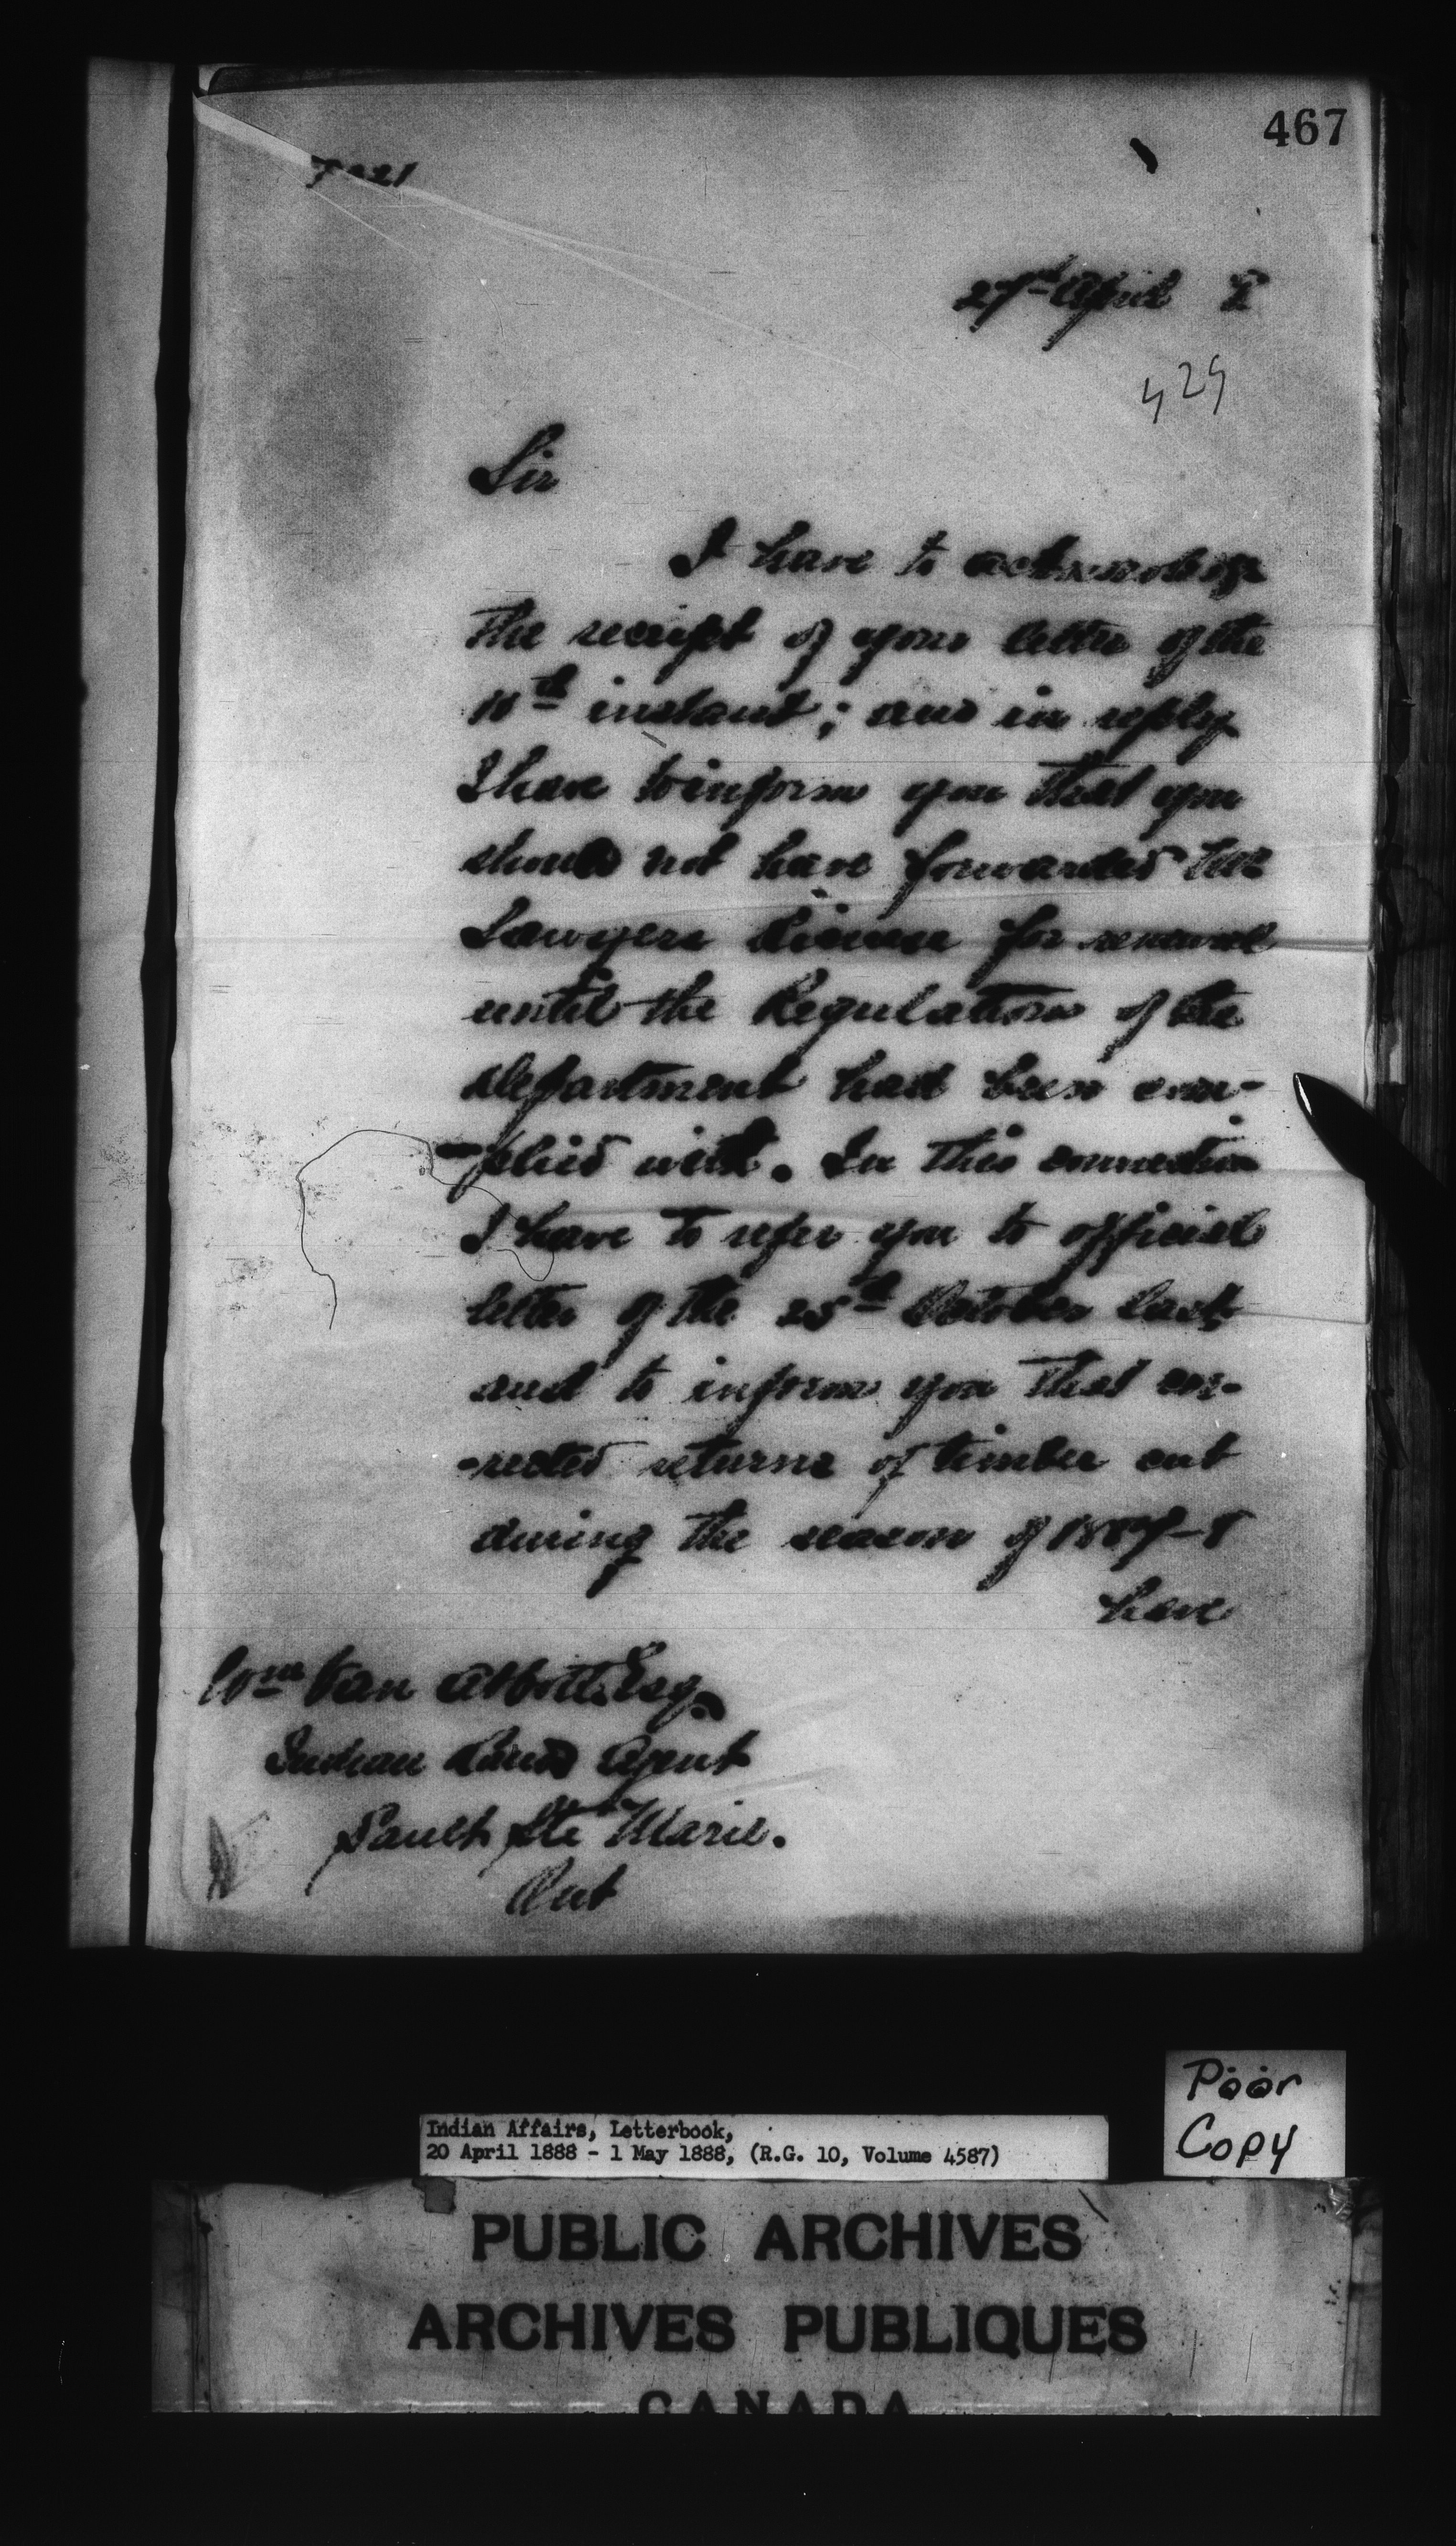 467
27th April 8
429
Sir
I have to acknowledge
the receipt of your letter of the
10th instant; and in reply
I have to inform you that you
should not have forwarded
Sawyers license for renewal
until the Regulations of the
department had been com-
-plied with. In this connection
I have to refer you to official
letter of the 25th October last
and to inform you that cor-
-rected returns of timber cut
during the season of 1887-8
have
Wm Van Abbott Esq.
Indian Land Agent
Sault Ste Marie.
Ont
Poor
Copy
Indian Affairs, Letterbook,
20 April 1888 - 1 May 1888, (R.G. 10, Volume 4587)
PUBLIC ARCHIVES
ARCHIVES PUBLIQUES
CANADA